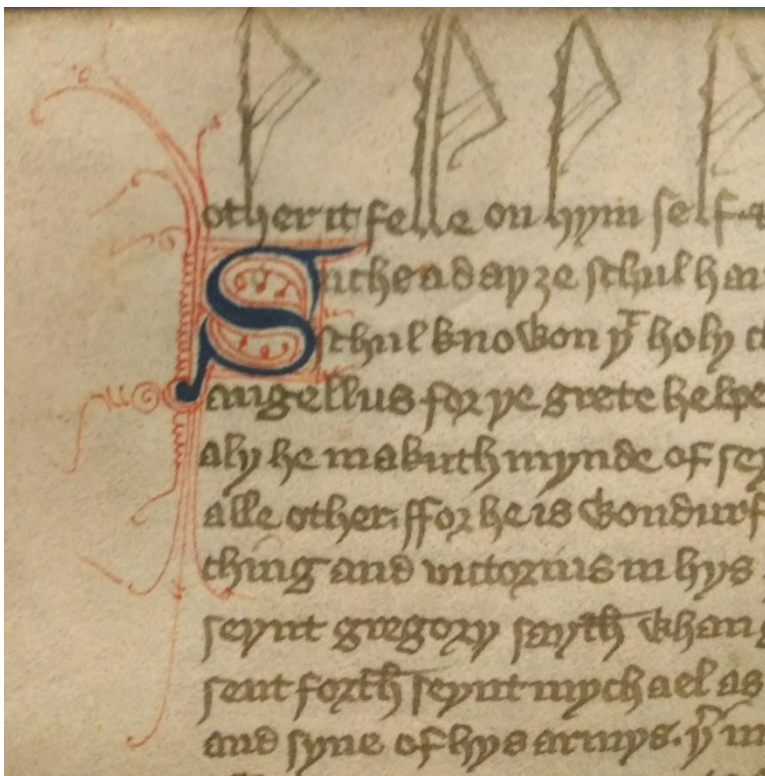 other it felle on hym self. &
Suche a day ze schul hau
schul knowon yͭ holy c
angellus for ye grete helpe
aly he makuth mynde of sey
alle other. ffor he is wondurf
thing and victorius in hys
seynt gregory sayth whan
sent forth seynt mychael as
and syne of hys armys. yͭ in